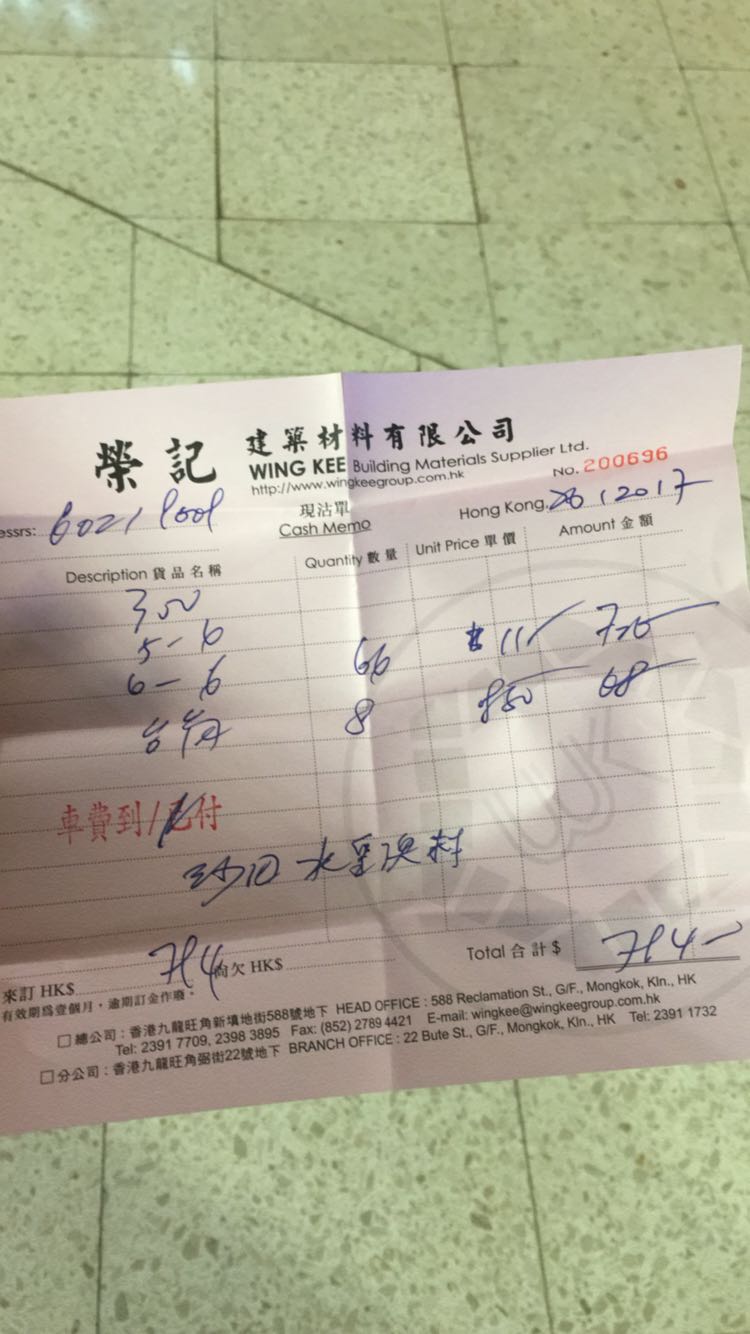 榮記 建築材料有限公司
WING KEE Building Materials Supplier Ltd.
http://www.wingkeegroup.com.hk
No. 200696
essrs: 6021
現沽單
Cash Memo
Hong Kong, 2017
Description 貨品名稱 Quantity 數量 Unit Price 單價 Amount 金額
300
5-6
6-6 66 $11
8 850 68
車費到/已付
Total 合計 $ 794
來訂 HK$ 794 尚欠 HK$
有效期為壹個月，逾期訂金作廢。
☐ 總公司：香港九龍旺角新填地街588號地下 HEAD OFFICE : 588 Reclamation St., G/F., Mongkok, Kln., HK
Tel: 2391 7709, 2398 3895 Fax: (852) 2789 4421 E-mail: wingkee@wingkeegroup.com.hk
☐ 分公司：香港九龍旺角弼街22號地下 BRANCH OFFICE : 22 Bute St., G/F., Mongkok, Kln., HK Tel: 2391 1732